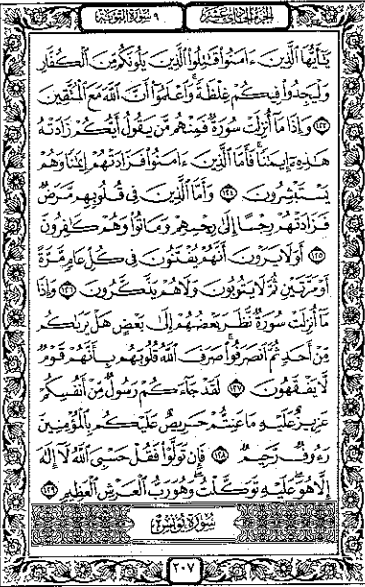 الجزء الحادي عشر ٩ سورة التوبة
يَٰٓأَيُّهَا ٱلَّذِينَ ءَامَنُوا۟ قَٰتِلُوا۟ ٱلَّذِينَ يَلُونَكُم مِّنَ ٱلْكُفَّارِ
وَلْيَجِدُوا۟ فِيكُمْ غِلْظَةً ۚ وَٱعْلَمُوٓا۟ أَنَّ ٱللَّهَ مَعَ ٱلْمُتَّقِينَ
١٢٣ وَإِذَا مَآ أُنزِلَتْ سُورَةٌ فَمِنْهُم مَّن يَقُولُ أَيُّكُمْ زَادَتْهُ
هَٰذِهِۦٓ إِيمَٰنًا ۚ فَأَمَّا ٱلَّذِينَ ءَامَنُوا۟ فَزَادَتْهُمْ إِيمَٰنًا وَهُمْ
يَسْتَبْشِرُونَ ١٢٤ وَأَمَّا ٱلَّذِينَ فِى قُلُوبِهِم مَّرَضٌ
فَزَادَتْهُمْ رِجْسًا إِلَىٰ رِجْسِهِمْ وَمَاتُوا۟ وَهُمْ كَٰفِرُونَ
١٢٥ أَوَلَا يَرَوْنَ أَنَّهُمْ يُفْتَنُونَ فِى كُلِّ عَامٍ مَّرَّةً
أَوْ مَرَّتَيْنِ ثُمَّ لَا يَتُوبُونَ وَلَا هُمْ يَذَّكَّرُونَ ١٢٦ وَإِذَا
مَآ أُنزِلَتْ سُورَةٌ نَّظَرَ بَعْضُهُمْ إِلَىٰ بَعْضٍ هَلْ يَرَىٰكُم
مِّنْ أَحَدٍ ثُمَّ ٱنصَرَفُوا۟ ۚ صَرَفَ ٱللَّهُ قُلُوبَهُم بِأَنَّهُمْ قَوْمٌ
لَّا يَفْقَهُونَ ١٢٧ لَقَدْ جَآءَكُمْ رَسُولٌ مِّنْ أَنفُسِكُمْ
عَزِيزٌ عَلَيْهِ مَا عَنِتُّمْ حَرِيصٌ عَلَيْكُم بِٱلْمُؤْمِنِينَ
رَءُوفٌ رَّحِيمٌ ١٢٨ فَإِن تَوَلَّوْا۟ فَقُلْ حَسْبِىَ ٱللَّهُ لَآ إِلَٰهَ
إِلَّا هُوَ ۖ عَلَيْهِ تَوَكَّلْتُ ۖ وَهُوَ رَبُّ ٱلْعَرْشِ ٱلْعَظِيمِ ١٢٩
سُورَةُ يُونُسَ
٢٠٧